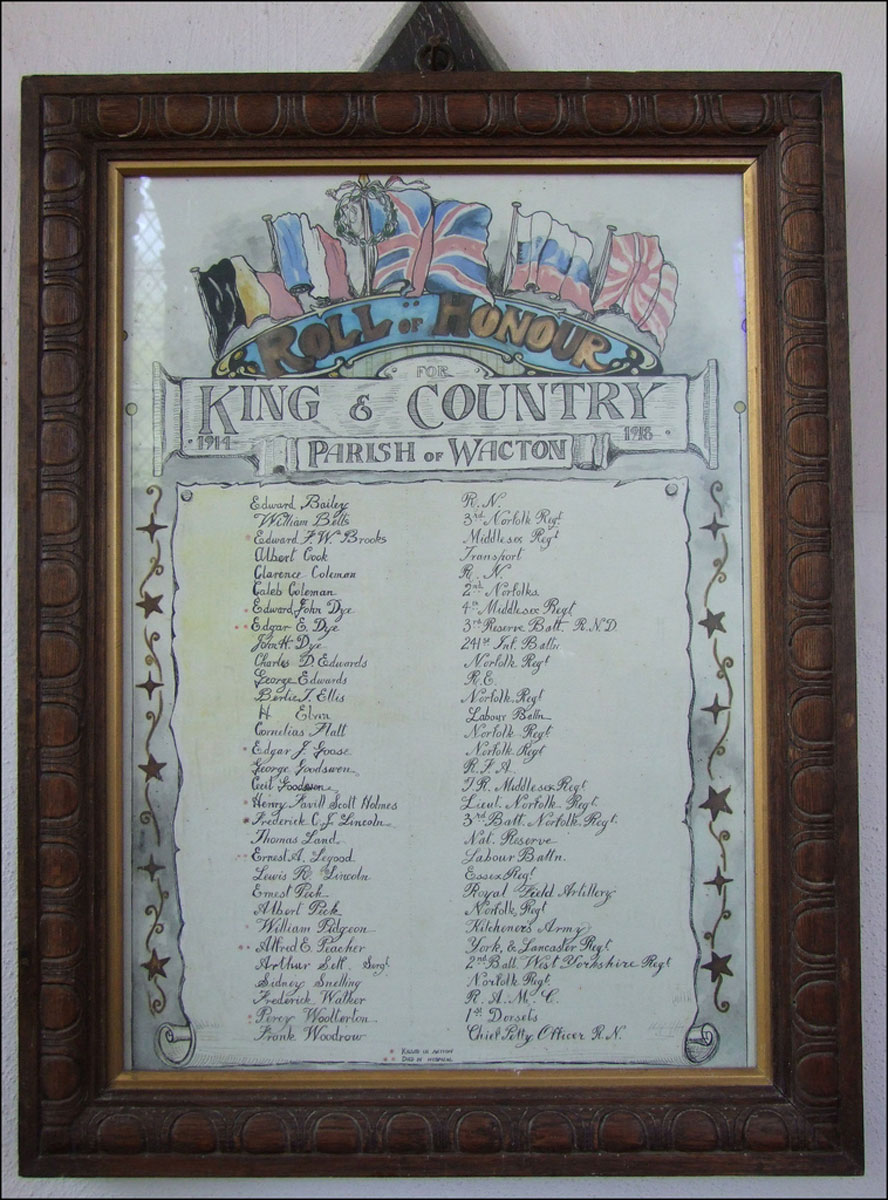 ROLL OF HONOUR
FOR
KING & COUNTRY
1914 1918
PARISH OF WACTON
Edward Bailey R. N.
William Betts 3rd Norfolk Regt
* Edward F. W. Brooks Middlesex Regt
Albert Cook Transport
Clarence Coleman R. N.
Caleb Coleman 2nd Norfolks.
* Edward John Dye 4th Middlesex Regt
** Edgar E. Dye 3rd Reserve Batt. R.N.D.
John H. Dye 241st Inf. Battn
Charles D. Edwards Norfolk Regt
George Edwards R.E.
Bertie T. Ellis Norfolk Regt
H. Elvin Labour Battn
Cornelias Flatt Norfolk Regt
* Edgar J. Goose Norfolk Regt
George Goodswen R.F.A.
Cecil Goodswen Middlesex Regt
* Henry Favill Scott Holmes Lieut. Norfolk Regt.
* Frederick C. J. Lincoln 3rd Batt. Norfolk Regt.
Thomas Land Nat. Reserve
** Ernest A. Legood Labour Battn.
Lewis R. Lincoln Essex Regt
Ernest Peck Royal Field Artillery
Albert Peck Norfolk Regt
* William Pidgeon Kitcheners Army
** Alfred E. Peacher York, & Lancaster Regt
Arthur Self. Sergt 2nd Batt West Yorkshire Regt
Sidney Snelling Norfolk Regt.
Frederick Walker R. A. M. C.
* Percy Woolterton 1st Dorsets
Frank Woodrow Chief Petty Officer R.N.
* KILLED IN ACTION
** DIED IN HOSPITAL